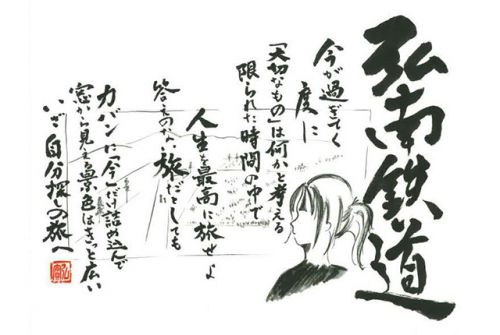 弘南鉄道
今が過ぎてく
度に
「大切なもの」は何かと考える
限られた時間の中で
人生を最高に旅せよ
答えのない旅だとしても
カバンに「今」だけ詰め込んで
窓から見える景色はきっと広い
いざ自分探しの旅へ